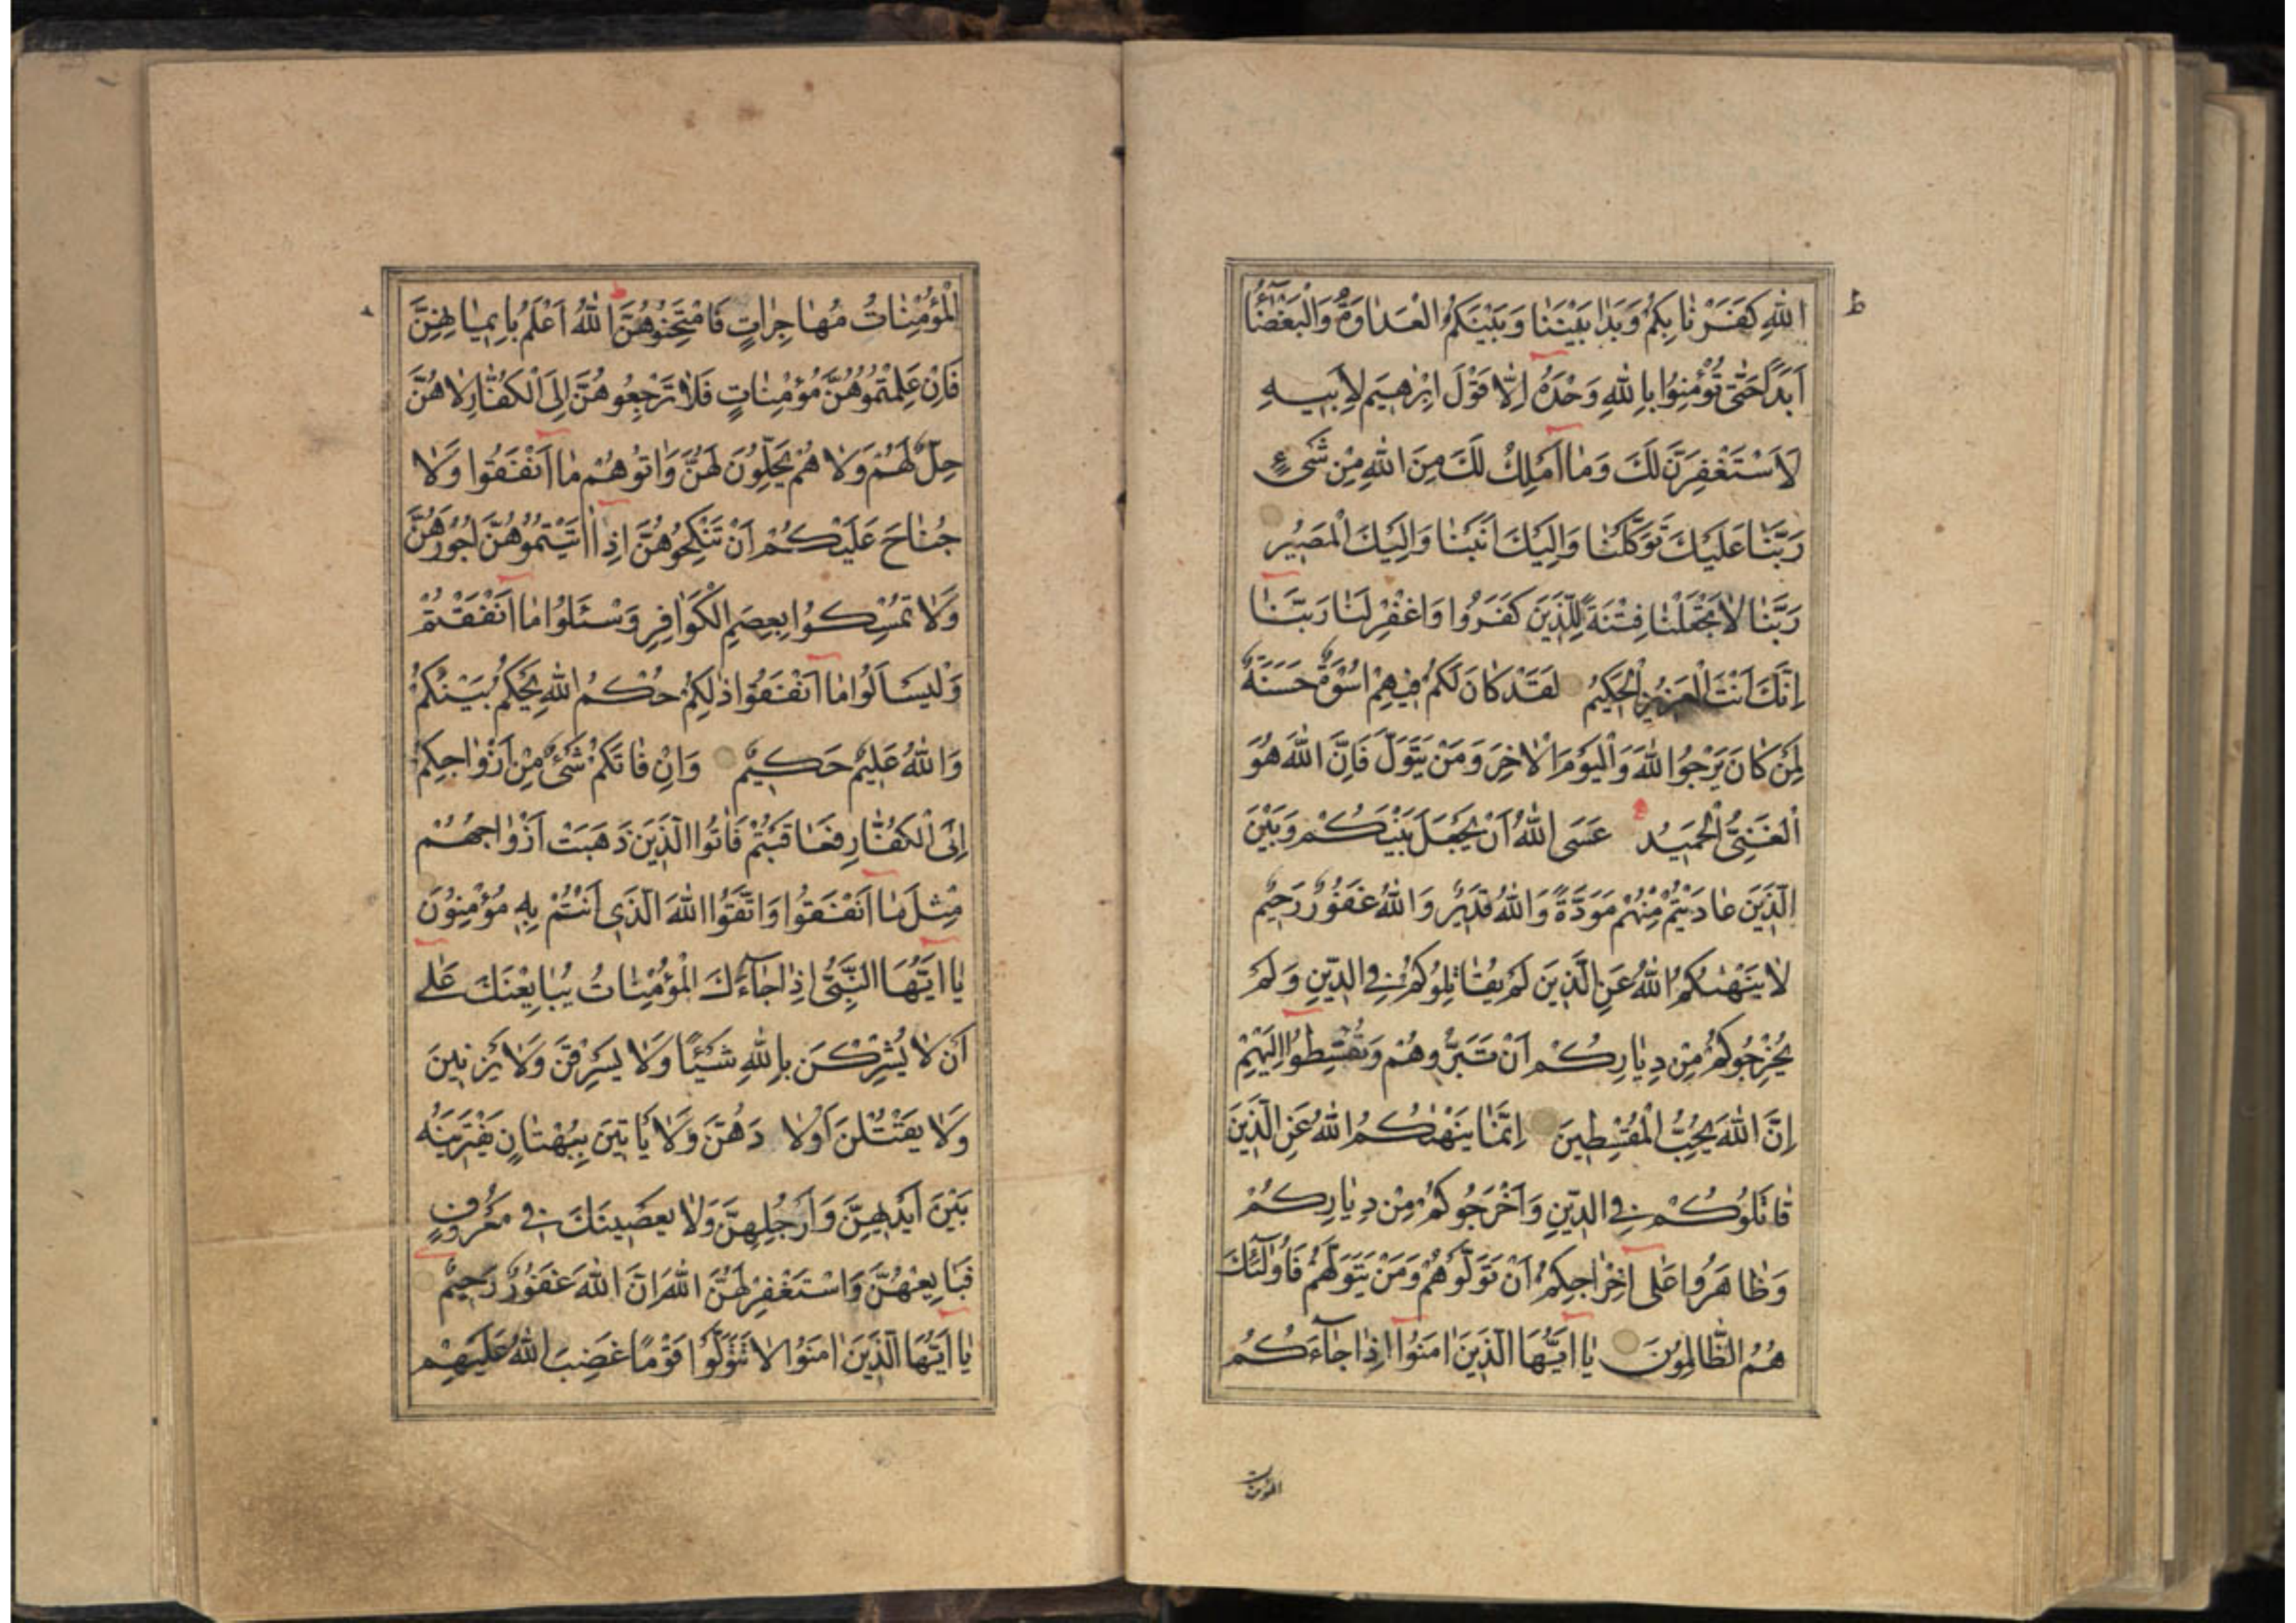 اللهِ كَفَرْنَا بِكُمْ وَبَدَا بَيْنَنَا وَبَيْنَكُمُ الْعَدَاوَةُ وَالْبَغْضَآءُ
اَبَدًا حَتّٰى تُؤْمِنُوا بِاللهِ وَحْدَهُ اِلَّا قَوْلَ اِبْرٰهِيمَ لِاَبِيهِ
لَاَسْتَغْفِرَنَّ لَكَ وَمَا اَمْلِكُ لَكَ مِنَ اللهِ مِنْ شَىْءٍ
رَبَّنَا عَلَيْكَ تَوَكَّلْنَا وَاِلَيْكَ اَنَبْنَا وَاِلَيْكَ الْمَصِيرُ
رَبَّنَا لَا تَجْعَلْنَا فِتْنَةً لِلَّذِينَ كَفَرُوا وَاغْفِرْ لَنَا رَبَّنَا
اِنَّكَ اَنْتَ الْعَزِيزُ الْحَكِيمُ لَقَدْ كَانَ لَكُمْ فِيهِمْ اُسْوَةٌ حَسَنَةٌ
لِمَنْ كَانَ يَرْجُوا اللهَ وَالْيَوْمَ الْاٰخِرَ وَمَنْ يَتَوَلَّ فَاِنَّ اللهَ هُوَ
الْغَنِىُّ الْحَمِيدُ عَسَى اللهُ اَنْ يَجْعَلَ بَيْنَكُمْ وَبَيْنَ
الَّذِينَ عَادَيْتُمْ مِنْهُمْ مَوَدَّةً وَاللهُ قَدِيرٌ وَاللهُ غَفُورٌ رَحِيمٌ
لَا يَنْهٰىكُمُ اللهُ عَنِ الَّذِينَ لَمْ يُقَاتِلُوكُمْ فِى الدِّينِ وَلَمْ
يُخْرِجُوكُمْ مِنْ دِيَارِكُمْ اَنْ تَبَرُّوهُمْ وَتُقْسِطُوا اِلَيْهِمْ
اِنَّ اللهَ يُحِبُّ الْمُقْسِطِينَ اِنَّمَا يَنْهٰىكُمُ اللهُ عَنِ الَّذِينَ
قَاتَلُوكُمْ فِى الدِّينِ وَاَخْرَجُوكُمْ مِنْ دِيَارِكُمْ
وَظَاهَرُوا عَلٰى اِخْرَاجِكُمْ اَنْ تَوَلَّوْهُمْ وَمَنْ يَتَوَلَّهُمْ فَاُولٰٓئِكَ
هُمُ الظَّالِمُونَ يَا اَيُّهَا الَّذِينَ اٰمَنُوا اِذَا جَآءَكُمُ
المؤمنات
الْمُؤْمِنَاتُ مُهَاجِرَاتٍ فَامْتَحِنُوهُنَّ اللهُ اَعْلَمُ بِاِيمَانِهِنَّ
فَاِنْ عَلِمْتُمُوهُنَّ مُؤْمِنَاتٍ فَلَا تَرْجِعُوهُنَّ اِلَى الْكُفَّارِ لَا هُنَّ
حِلٌّ لَهُمْ وَلَا هُمْ يَحِلُّونَ لَهُنَّ وَاٰتُوهُمْ مَا اَنْفَقُوا وَلَا
جُنَاحَ عَلَيْكُمْ اَنْ تَنْكِحُوهُنَّ اِذَا اٰتَيْتُمُوهُنَّ اُجُورَهُنَّ
وَلَا تُمْسِكُوا بِعِصَمِ الْكَوَافِرِ وَسْئَلُوا مَا اَنْفَقْتُمْ
وَلْيَسْاَلُوا مَا اَنْفَقُوا ذٰلِكُمْ حُكْمُ اللهِ يَحْكُمُ بَيْنَكُمْ
وَاللهُ عَلِيمٌ حَكِيمٌ وَاِنْ فَاتَكُمْ شَىْءٌ مِنْ اَزْوَاجِكُمْ
اِلَى الْكُفَّارِ فَعَاقَبْتُمْ فَاٰتُوا الَّذِينَ ذَهَبَتْ اَزْوَاجُهُمْ
مِثْلَ مَا اَنْفَقُوا وَاتَّقُوا اللهَ الَّذِى اَنْتُمْ بِهِ مُؤْمِنُونَ
يَا اَيُّهَا النَّبِىُّ اِذَا جَآءَكَ الْمُؤْمِنَاتُ يُبَايِعْنَكَ عَلٰى
اَنْ لَا يُشْرِكْنَ بِاللهِ شَيْئًا وَلَا يَسْرِقْنَ وَلَا يَزْنِينَ
وَلَا يَقْتُلْنَ اَوْلَادَهُنَّ وَلَا يَاْتِينَ بِبُهْتَانٍ يَفْتَرِينَهُ
بَيْنَ اَيْدِيهِنَّ وَاَرْجُلِهِنَّ وَلَا يَعْصِينَكَ فِى مَعْرُوفٍ
فَبَايِعْهُنَّ وَاسْتَغْفِرْ لَهُنَّ اللهَ اِنَّ اللهَ غَفُورٌ رَحِيمٌ
يَا اَيُّهَا الَّذِينَ اٰمَنُوا لَا تَتَوَلَّوْا قَوْمًا غَضِبَ اللهُ عَلَيْهِمْ